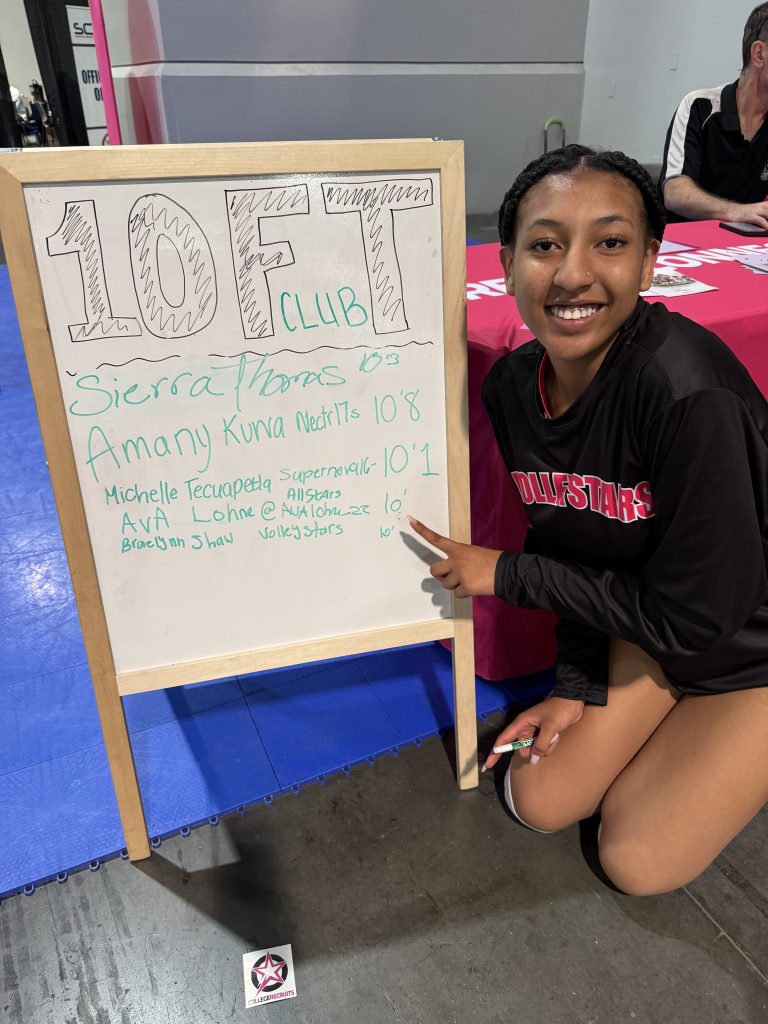 SC
OFFICI
OF
10FT
CLUB
Sierra Thomas 10'3
Amany Kuna Nectr17s 10'8
Michelle Tecuapetla Supernova16- 10'1
Allstars
AvA Lohne @AVAlohne_22 10'
Braelynn Shaw Volleystars 10'
RE CONNEC
OLLEYSTARS
COLLEGERECRUITS